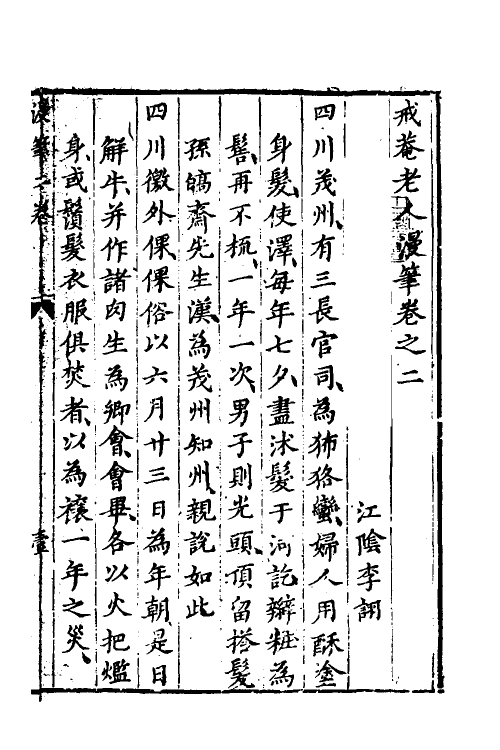 戒菴老人漫筆卷之二
江陰李詡
四川茂州、有三長官司、為狒狢蠻、婦人用酥塗
身髮、使澤、每年七夕、盡沐髮于河、訖辮粧為
髻、再不梳、一年一次、男子則光頭、頂留搭髮
孫皜齋先生漢、為茂州知州、親說如此
四川徼外倮倮俗以六月廿三日為年朝、是日
解牛、并作諸肉生為鄉會、會畢、各以火把爁
身、或鬚髮衣服俱焚者、以為禳一年之災、
漫筆二卷
壹